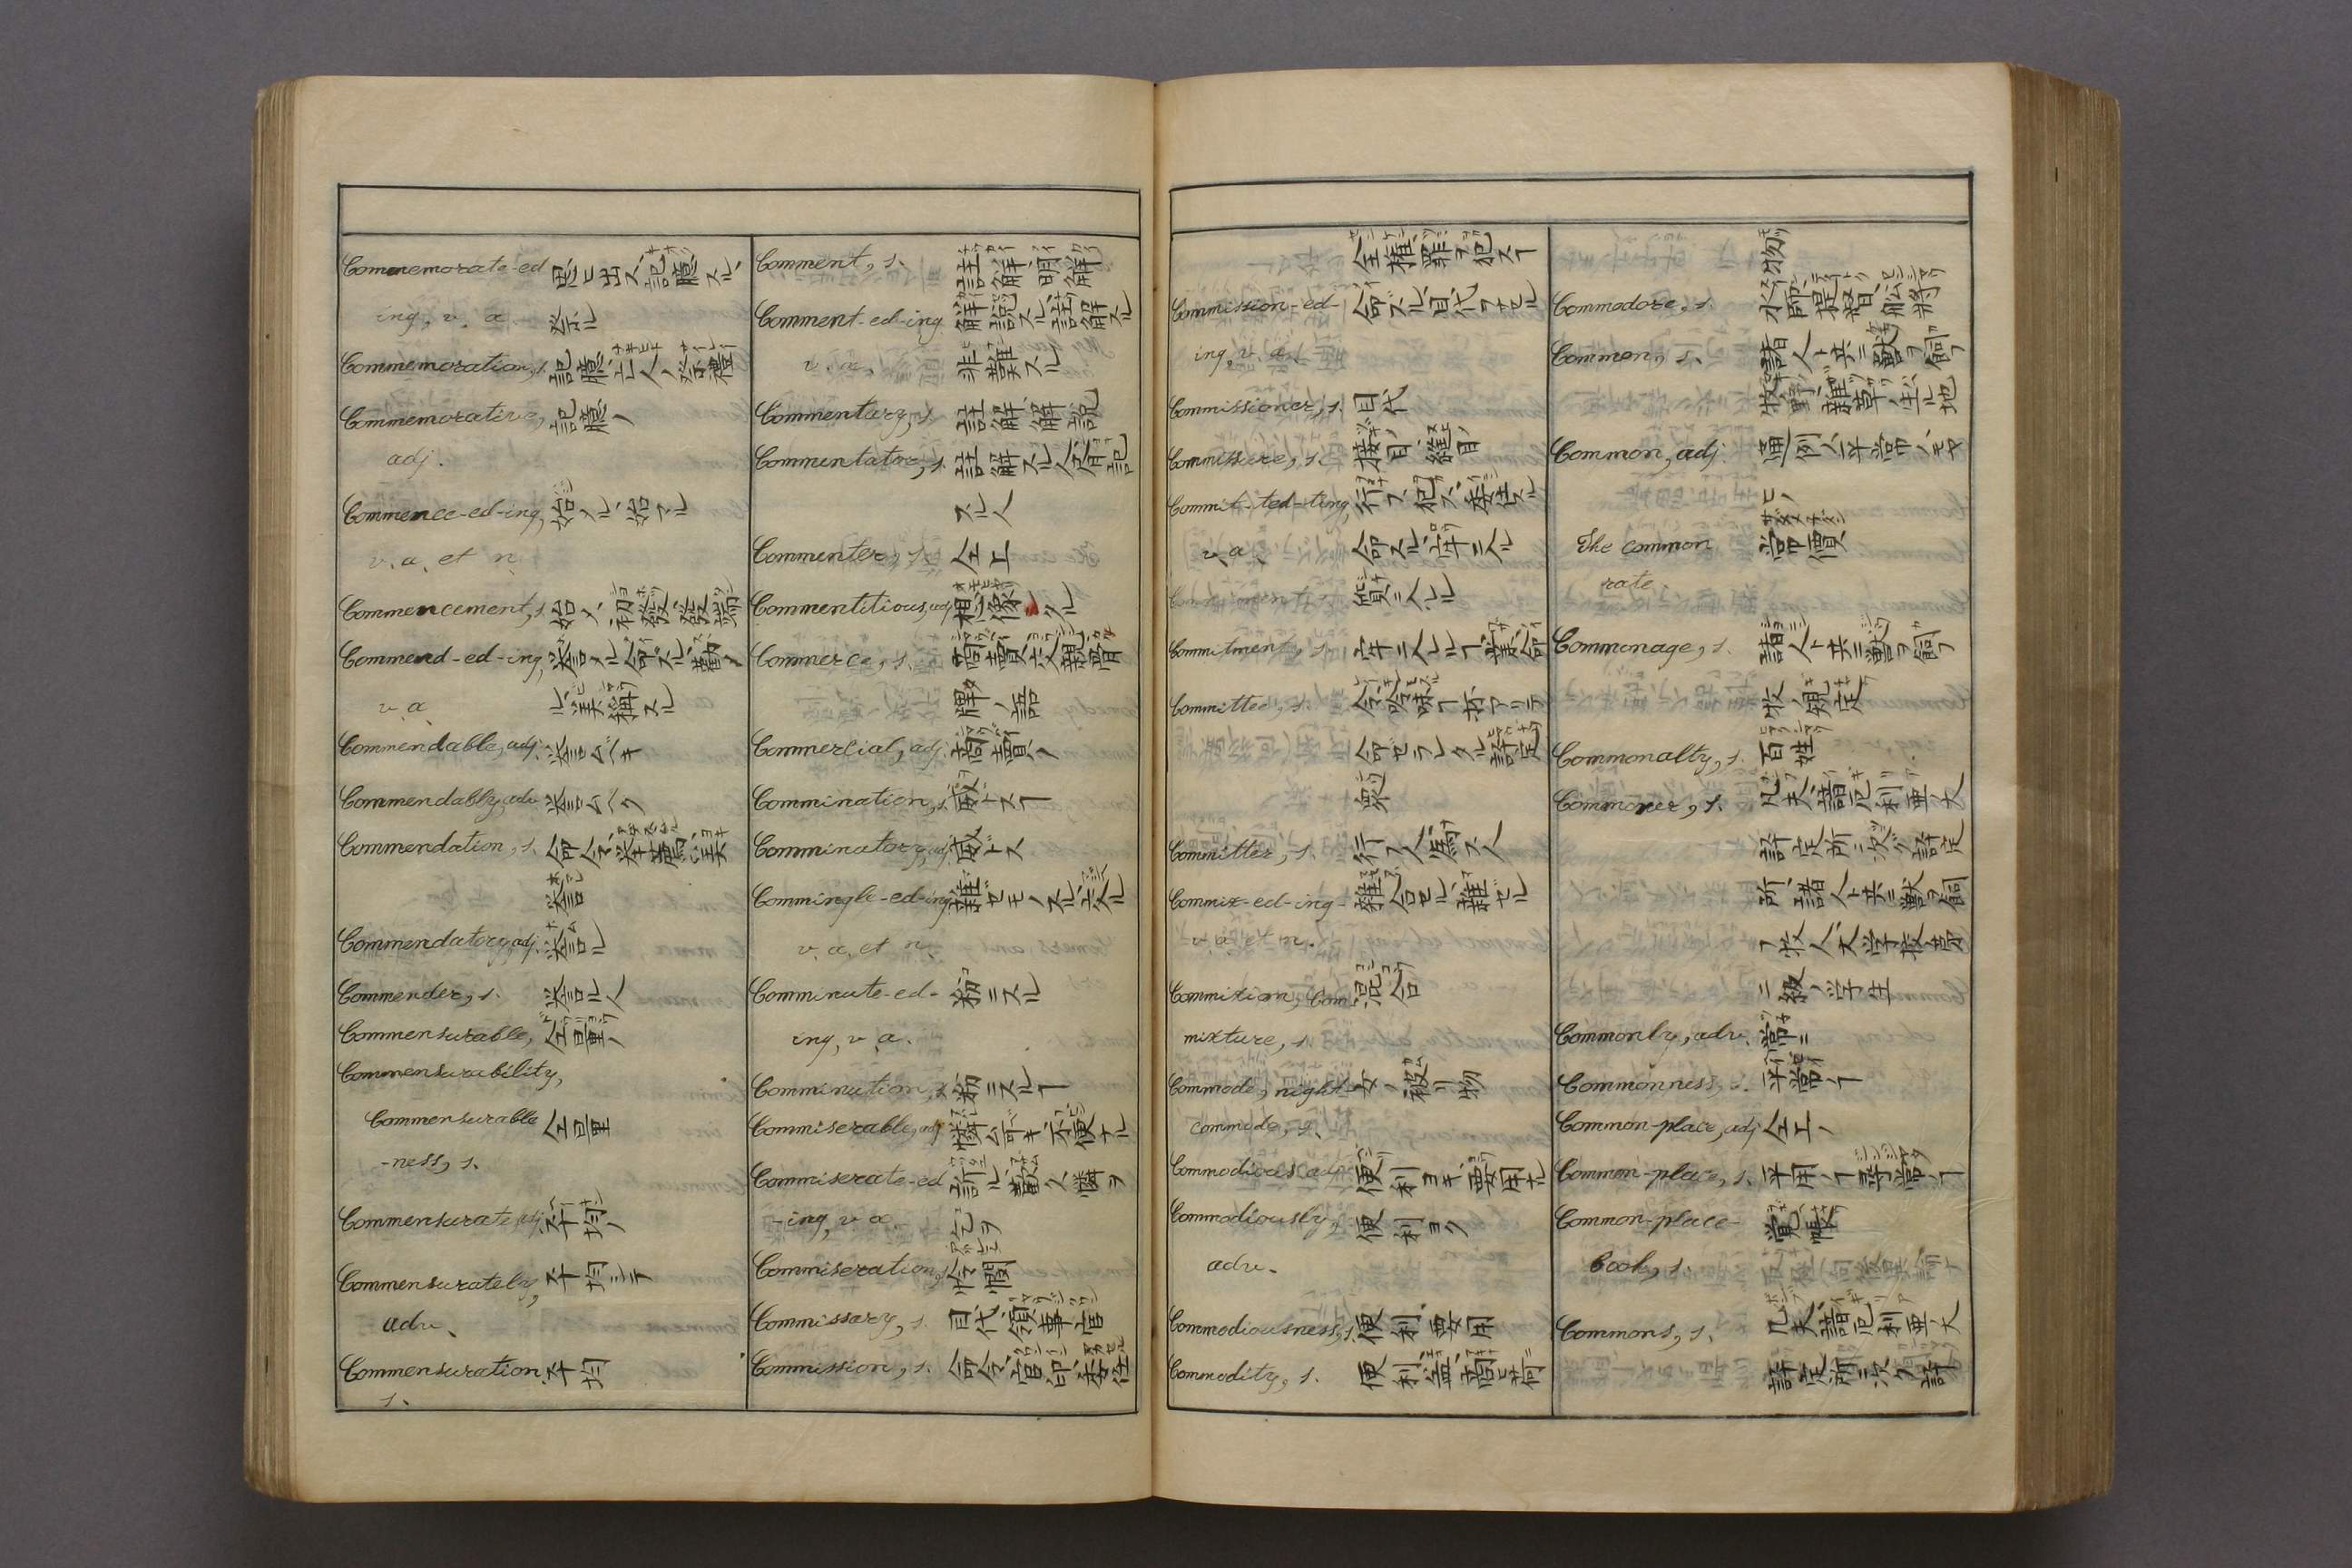 Commemorate-ed 思ヒ出ス、記臆スル、
ing, v. a. 祭ル
Commemoration, s. 記臆、亡人ノ祭禮
Commemorative, 記臆ノ
adj.
Commence-ed-ing, 始ル、始マル
v. a. et n.
Commencement, s. 始メ、初發、發端
Commend-ed-ing, 誉メル命スル、勸ム
v. a. ル美稱スル
Commendable, adj. 誉ムベキ
Commendably, adv. 誉ムベク
Commendation, s. 命令、挙薦、美
誉
Commendatory, adj. 誉ル
Commender, s. 誉ル人
Commensurable, 仝量ノ
Commensurability,
Commensurable 仝量
-ness, s.
Commensurate, adj. 平均ノ
Commensurately, 平均シテ
adv.
Commensuration 平均
s.
Comment, s. 註解、明解
Comment-ed-ing 解說スル、註解スル
v. n. 非難スル
Commentary, s. 註解、解說
Commentator, s. 註解スル人
スル人
Commenter, s. 仝上
Commentitious, adj. 想像シタル
Commerce, s. 商賣
牌ノ語
Commercial, adj. 商賣ノ
Commination, s. 威ドス丁
Comminatory, adj. 威ドス
Commingle-ed-ing 雜ゼモノスル
v. a. et n.
Comminute-ed- 粉ニスル
ing, v. a.
Comminution, s. 粉ニスル丁
Commiserable, adj. 憐ム可キ、不便ナル
Commiserate-ed 人憐ヲ
-ing, v. a. 乞ヲ
Commiseration, s. 憐憫
Commissary, s. 目代、領事官
Commission, s. 命令、官印、委任
全權、罪ヲ犯ス丁
Commission-ed- 命スル、目代ヲサセル
ing, v. a.
Commissioner, s. 目代
Commissure, s. 接目、縫目
Commit-ted-ting, 行フ、犯ス、委任スル
v. a. 命スル、牢ニ入ル
質ニ入ル
Commitment, s. 牢ニ入ルヽ丁
Committee, s. 吟味丁抔アリテ
命セラレタル評定
衆
Committer, s. 行フ人、爲ス人
Commix-ed-ing- 雜合セル、雜ゼル
v. a. et n.
Commixion, Com 混合
mixture, s.
Commode, night 女ノ被リ物
commode, s.
Commodious adj. 便利ヨキ、要用ナル
Commodiously, 便利ヨク
adv.
Commodiousness, s. 便利、要用
Commodity, s. 便利、益、商ヒ荷
物
Commodore, s. 水師提督、船將
Common, s. 諸人ト共ニ獸ヲ飼フ
牧野、雜草ノ生ル地
Common, adj. 通例ノ、平常ノ、モヤ
ヒノ
The common 常價
rate.
Commonage, s. 諸人ト共ニ獸ヲ飼フ
牧ノ規定
Commonalty, s. 百姓
Commoner, s. 凡夫、諳厄利亜ノ大
評定所ニ次グ評定
所、諸人ト共ニ獸ヲ飼
フ牧人、大学校第
二級ノ学生
Commonly, adv. 常ニ
Commonness, s. 平常ノ丁
Common-place, adj 仝上ノ
Common-place, s. 平用ノ丁尋常ノ丁
Common-place- 覚帳
book, s.
Commons, s. 凡夫、諳厄利亜ノ大
評定所ニ次ク評